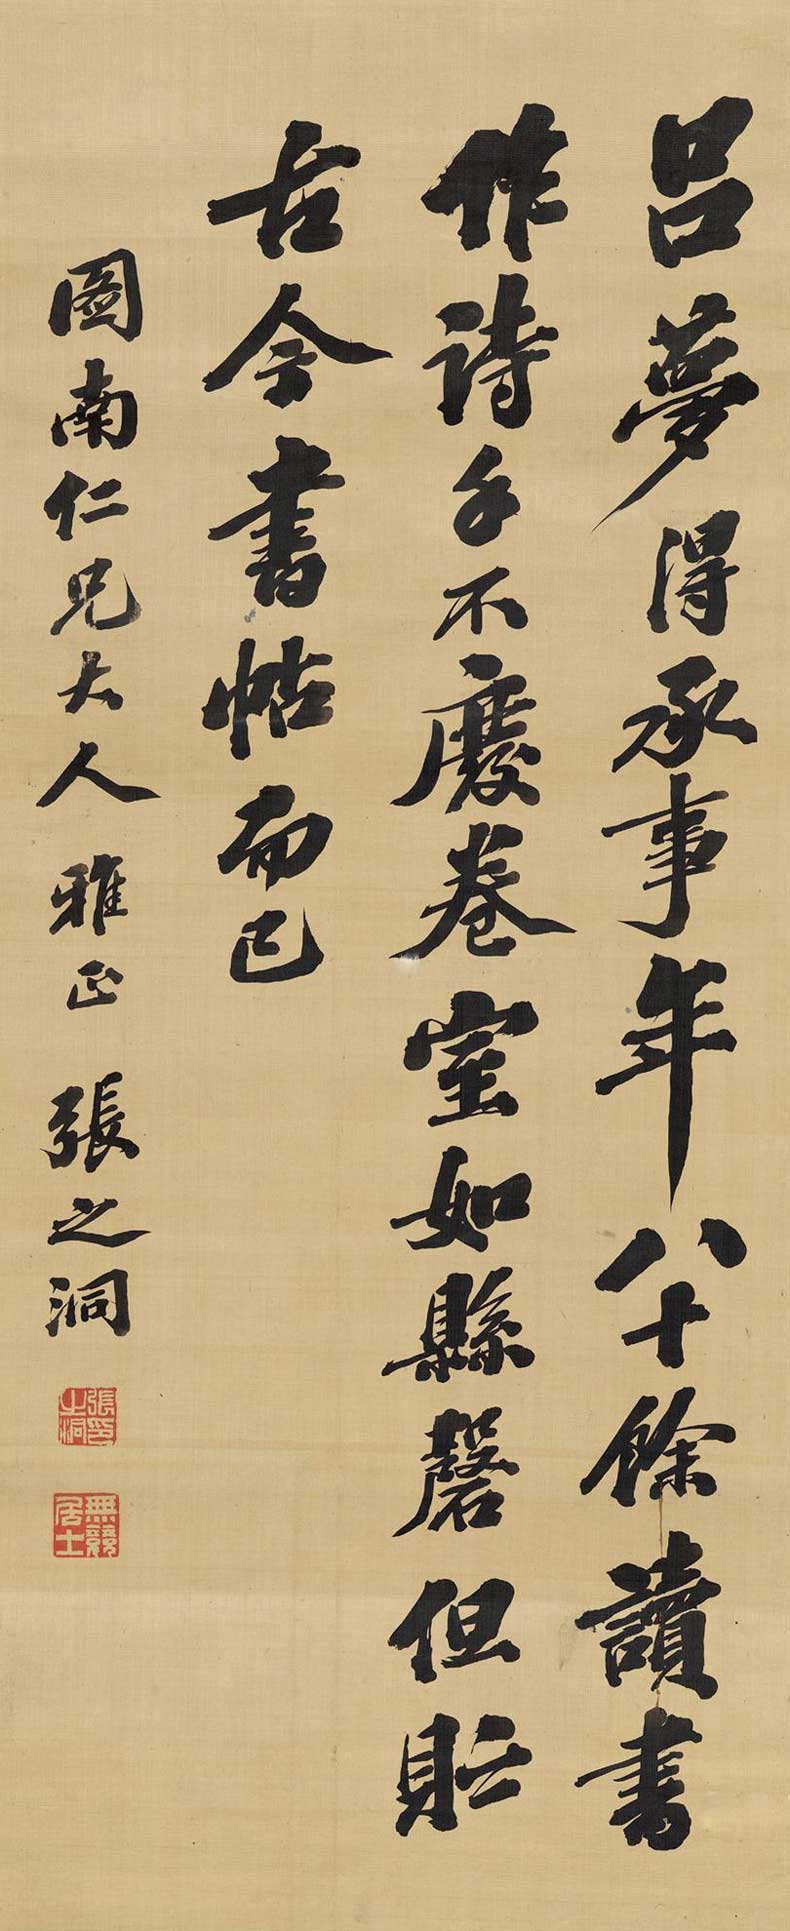 呂夢得承事年八十餘讀書
作詩手不廢卷室如縣磬但貯
古今書帖而已
圖南仁兄大人雅正 張之洞
張之洞印
無競居士